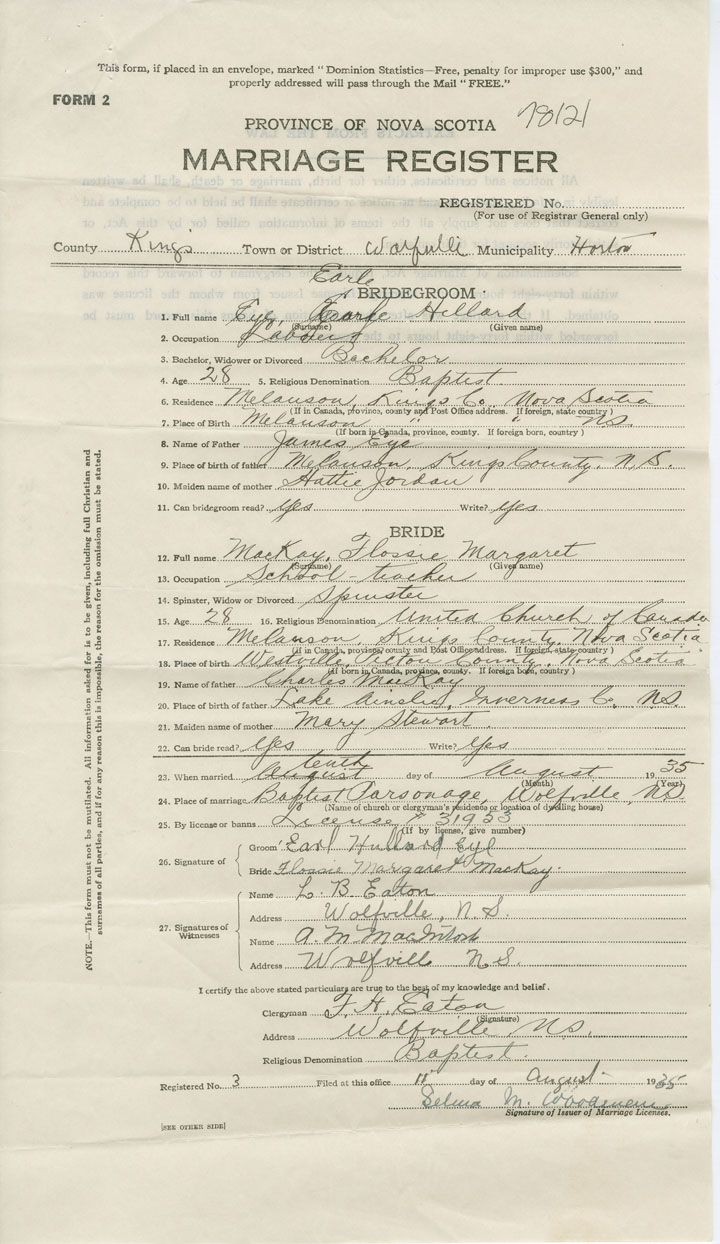 This form, if placed in an envelope, marked "Dominion Statistics—Free, penalty for improper use $300," and
properly addressed will pass through the Mail "FREE."
FORM 2
78121
PROVINCE OF NOVA SCOTIA
MARRIAGE REGISTER
REGISTERED No.
(For use of Registrar General only)
County Kings Town or District Wolfville Municipality Horton
Earle
BRIDEGROOM
1. Full name Eye, George Hillard
(Surname) (Given name)
2. Occupation Laborer
3. Bachelor, Widower or Divorced Bachelor
4. Age 28 5. Religious Denomination Baptist
6. Residence Melanson, Kings Co, Nova Scotia
(If in Canada, province, county and Post Office address. If foreign, state country)
7. Place of Birth Melanson " " N.S.
(If born in Canada, province, county. If foreign born, country)
8. Name of Father James Eye
9. Place of birth of father Melanson, Kings County, N.S.
10. Maiden name of mother Hattie Jordan
11. Can bridegroom read? Yes Write? Yes
BRIDE
12. Full name MacKay, Flossie Margaret
(Surname) (Given name)
13. Occupation School-teacher
14. Spinster, Widow or Divorced Spinster
15. Age 28 16. Religious Denomination United Church of Canada
17. Residence Melanson, Kings County, Nova Scotia
(If in Canada, province, county and Post Office address. If foreign, state country)
18. Place of birth Westville, Pictou County, Nova Scotia
(If born in Canada, province, county. If foreign born, country)
19. Name of father Charles MacKay
20. Place of birth of father Lake Ainslie, Inverness Co, N.S.
21. Maiden name of mother Mary Stewart
22. Can bride read? Yes Write? Yes
tenth
23. When married August day of August 1935
(Month) (Year)
24. Place of marriage Baptist Parsonage, Wolfville, N.S.
(Name of church or clergyman's residence or location of dwelling house)
25. By license or banns License # 31953
(If by license, give number)
26. Signature of
Groom Earl Hillard Eye
Bride Flossie Margaret MacKay
27. Signatures of Witnesses
Name L. B. Eaton
Address Wolfville, N.S.
Name A. M. MacIntosh
Address Wolfville N.S.
I certify the above stated particulars are true to the best of my knowledge and belief.
Clergyman F. H. Eaton
(Signature)
Address Wolfville N.S.
Religious Denomination Baptist
Registered No. 3 Filed at this office 11 day of August 1935
Selma M. Woodman
Signature of Issuer of Marriage Licenses.
[SEE OTHER SIDE]
NOTE.—This form must not be mutilated. All information asked for is to be given, including full Christian and
surnames of all parties, and if for any reason this is impossible, the reason for the omission must be stated.